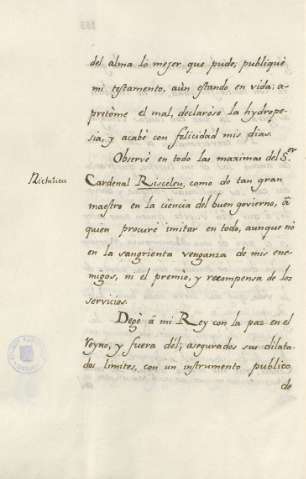 del alma lo mejor que pude; publiqué
mi testamento, aùn estando en vida; a-
pretòme el mal, declaròse la hydrope-
sia, y acabè con felicidad mis dias.
Observè en todo las maximas del S.or
Cardenal Risceleu, como de tan gran
maestro en la ciencia del buen govierno, â
quien procurè imitar en todo, aunque nó
en la sangrienta venganza de mis ene-
migos, ni el premio, y recompensa de los
servicios.
Degè â mi Rey con la paz en el
Reyno, y fuera dél; asegurados sus dilata-
dos limites, con un instrumento publico
de